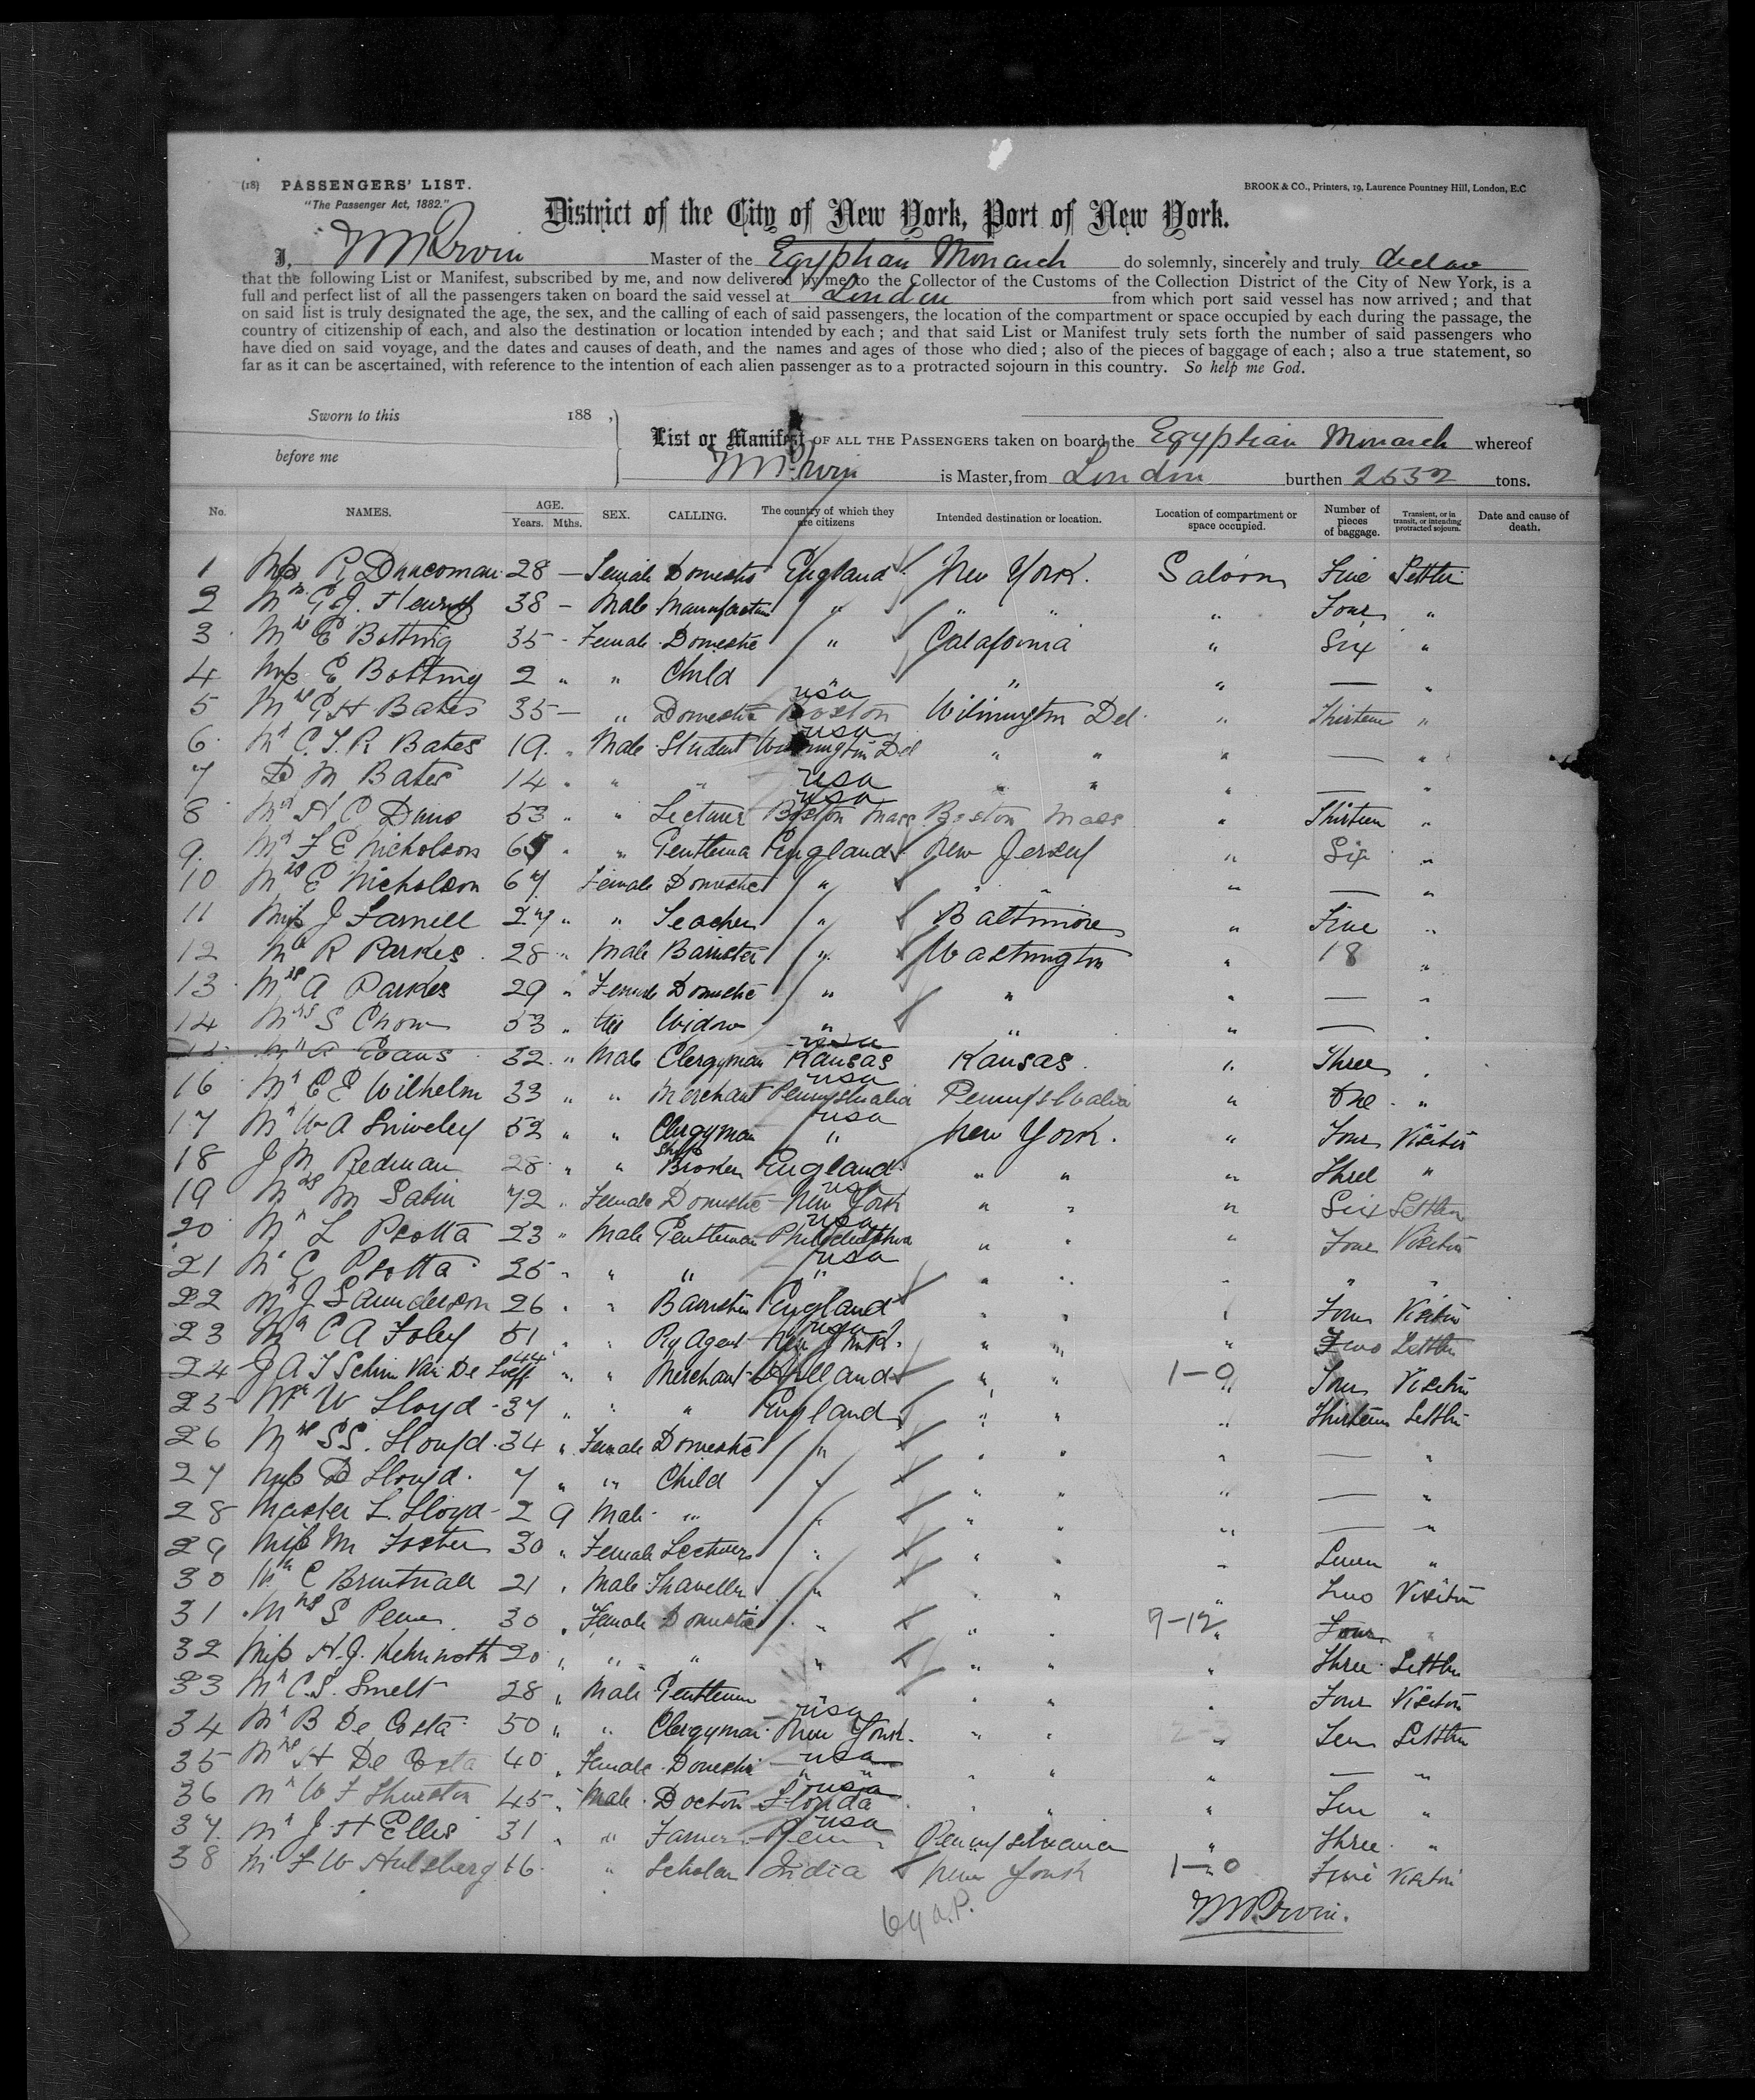 (18) PASSENGERS' LIST. BROOK & CO., Printers, 19, Laurence Pountney Hill, London, E.C
"The Passenger Act, 1882."
District of the City of New York, Port of New York.
I, Master of the Egyptian Monarch do solemnly, sincerely and truly declare
that the following List or Manifest, subscribed by me, and now delivered by me to the Collector of the Customs of the Collection District of the City of New York, is a
full and perfect list of all the passengers taken on board the said vessel at London from which port said vessel has now arrived; and that
on said list is truly designated the age, the sex, and the calling of each of said passengers, the location of the compartment or space occupied by each during the passage, the
country of citizenship of each, and also the destination or location intended by each; and that said List or Manifest truly sets forth the number of said passengers who
have died on said voyage, and the dates and causes of death, and the names and ages of those who died; also of the pieces of baggage of each; also a true statement, so
far as it can be ascertained, with reference to the intention of each alien passenger as to a protracted sojourn in this country. So help me God.
Sworn to this 188 ,
before me
List or Manifest OF ALL THE PASSENGERS taken on board the Egyptian Monarch whereof
is Master, from London burthen 2532 tons.
No. NAMES. AGE. Years. Mths. SEX. CALLING. The country of which they are citizens Intended destination or location. Location of compartment or space occupied. Number of pieces of baggage. Transient, or in transit, or intending protracted sojourn. Date and cause of death.
1 Miss R 28 — Female Domestic England New York. Saloon Five Settler
2 Mr G J 38 - Male Manufacturer " " " " Four "
3 Mrs E Botting 35 - Female Domestic " Calafornia " Six "
4 Miss E Botting 2 " " Child " " " — "
5 Mrs G H Bates 35 — " Domestic usa Boston Wilmington Del. " Thirteen "
6 Mr C. J. R Bates 19 " Male Student usa Wilmington Del " " " — "
7 D M Bates 14 " " " usa " " " — "
8 Mr H C 53 " " Lecturer usa Boston Mass Boston Mass " Thirteen "
9 Mr F E Nicholson " " Gentleman England New Jersey " Six "
10 Mrs E Nicholson 67 Female Domestic " " " " — "
11 Miss J Farnell 27 " " Teacher " Baltimore " Five "
12 Mr R Parkes 28 " Male Barrister " Washington " 18 "
13 Mrs A Parkes 29 " Female Domestic " " " — "
14 Mrs S 53 " Widow " " " — "
15 Evans 32 " Male Clergyman usa Kansas Kansas. " Three "
16 Mr E E Wilhelm 33 " " Merchant usa Pennyslvalia Pennyslvalia " One "
17 Mr W A Sniveley 52 " " Clergyman usa " New York. " Four Visitor
18 J M Redman 28 " " Ship Broker England " " " Three "
19 Mrs M Sabin 72 " Female Domestic usa New York " " " Six Settler
20 Mr L Psotta 23 " Male Gentleman usa Philadelphia " " " Four Visitor
21 Mr C Psotta 25 " " " usa " " " " " "
22 Mr J Saunderson 26 " " Barrister England " " " Four Visitor
23 Mr C A Foley 51 " " Ry Agent usa New York " " " Two Settler
24 J A J Schim Van De Loeff 44 " " Merchant Holland " " 1-0 " Four Visitor
25 Mr W Lloyd 37 " " " England " " " Thirteen Settler
26 Mrs S S. Lloyd 34 " Female Domestic " " " " — "
27 Miss D Lloyd 7 " " Child " " " " — "
28 Master L. Lloyd 2 9 Male " " " " " — "
29 Miss M Foster 30 " Female " " " " Seven "
30 Mr C 21 " Male Traveller " " " " Two Visitor
31 Mrs S 30 " Female Domestic " " " " Four "
32 Miss H. J. 20 " " " " " " " Three Settler
33 Mr C. S. Smelt 28 " Male Gentleman " " " Four Visitor
34 Mr B De Costa 50 " " Clergyman usa New York. " " " Ten Settler
35 Mrs H De Costa 40 " Female Domestic usa " " " " " — "
36 Mr W F Thurston 45 " Male Doctor usa Florida " " " Ten "
37 Mr J H Ellis 31 " " Farmer usa Penn Pennyslvania " Three "
38 Mr F W 16 " Scholar India New York 1-0 Five Visitor